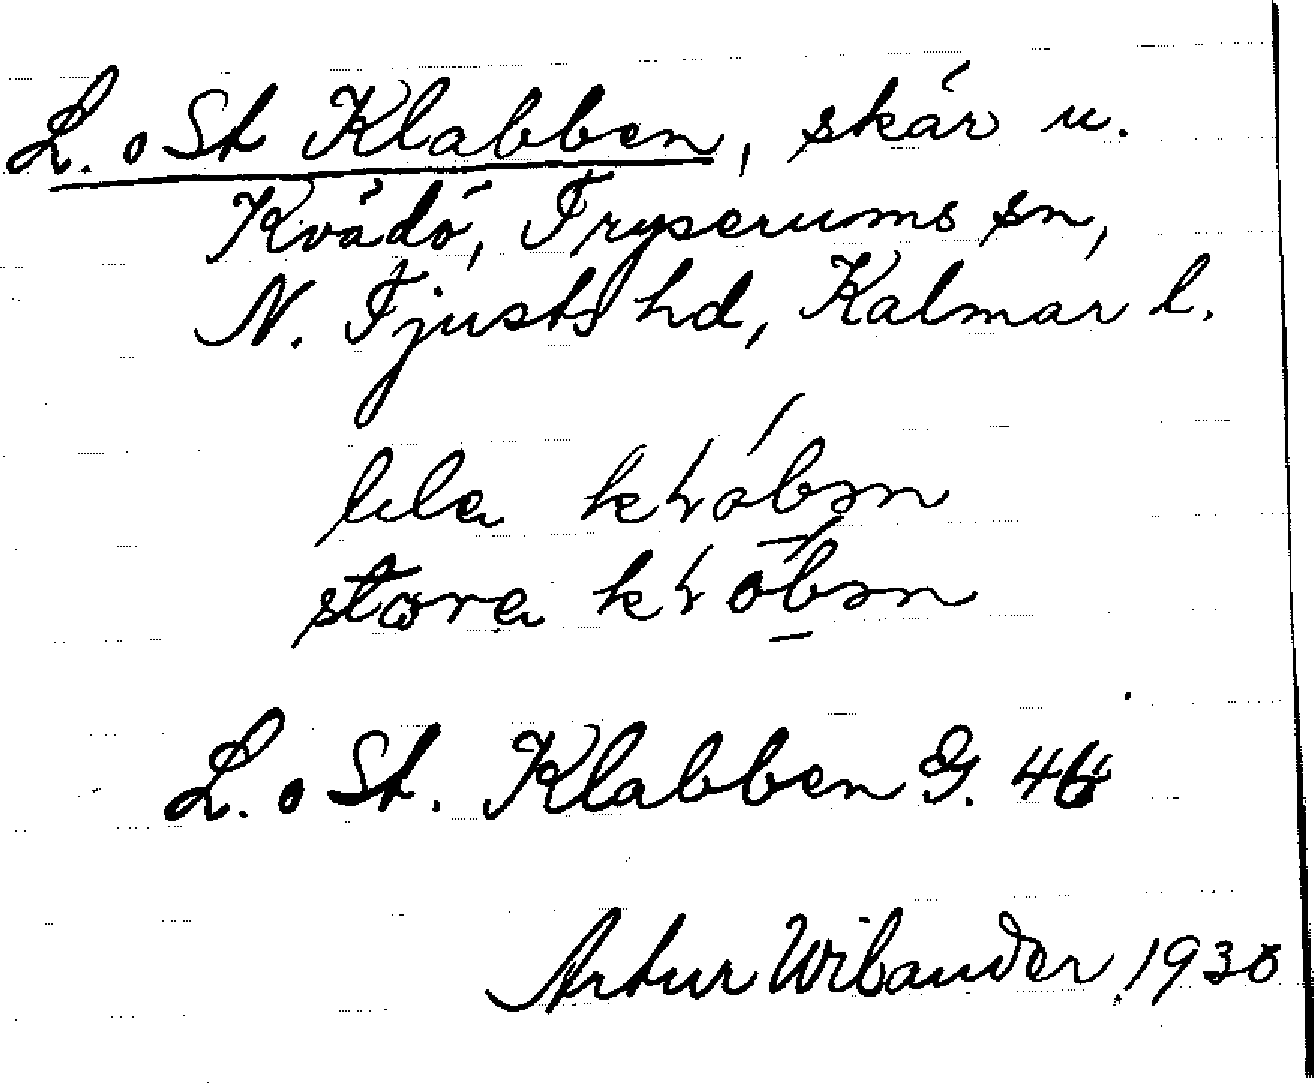 L. o St Klabben, skär u.
Kvädö, Tryserums sn,
N. Tjusts hd, Kalmar l.
lila
stora
L. o St. Klabben G. 44
Artur Wilander 1930